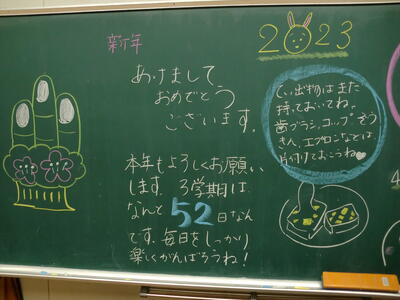 新年
2023
あけまして
おめでとう
ございます。
本年もよろしくお願い
します。3学期は、
なんと52日なん
です。毎日をしっかり
楽しくがんばろうね!
持っておいてね。
歯ブラシ、コップ、ぞう
きん、エプロンなどは、
片付けておこうね